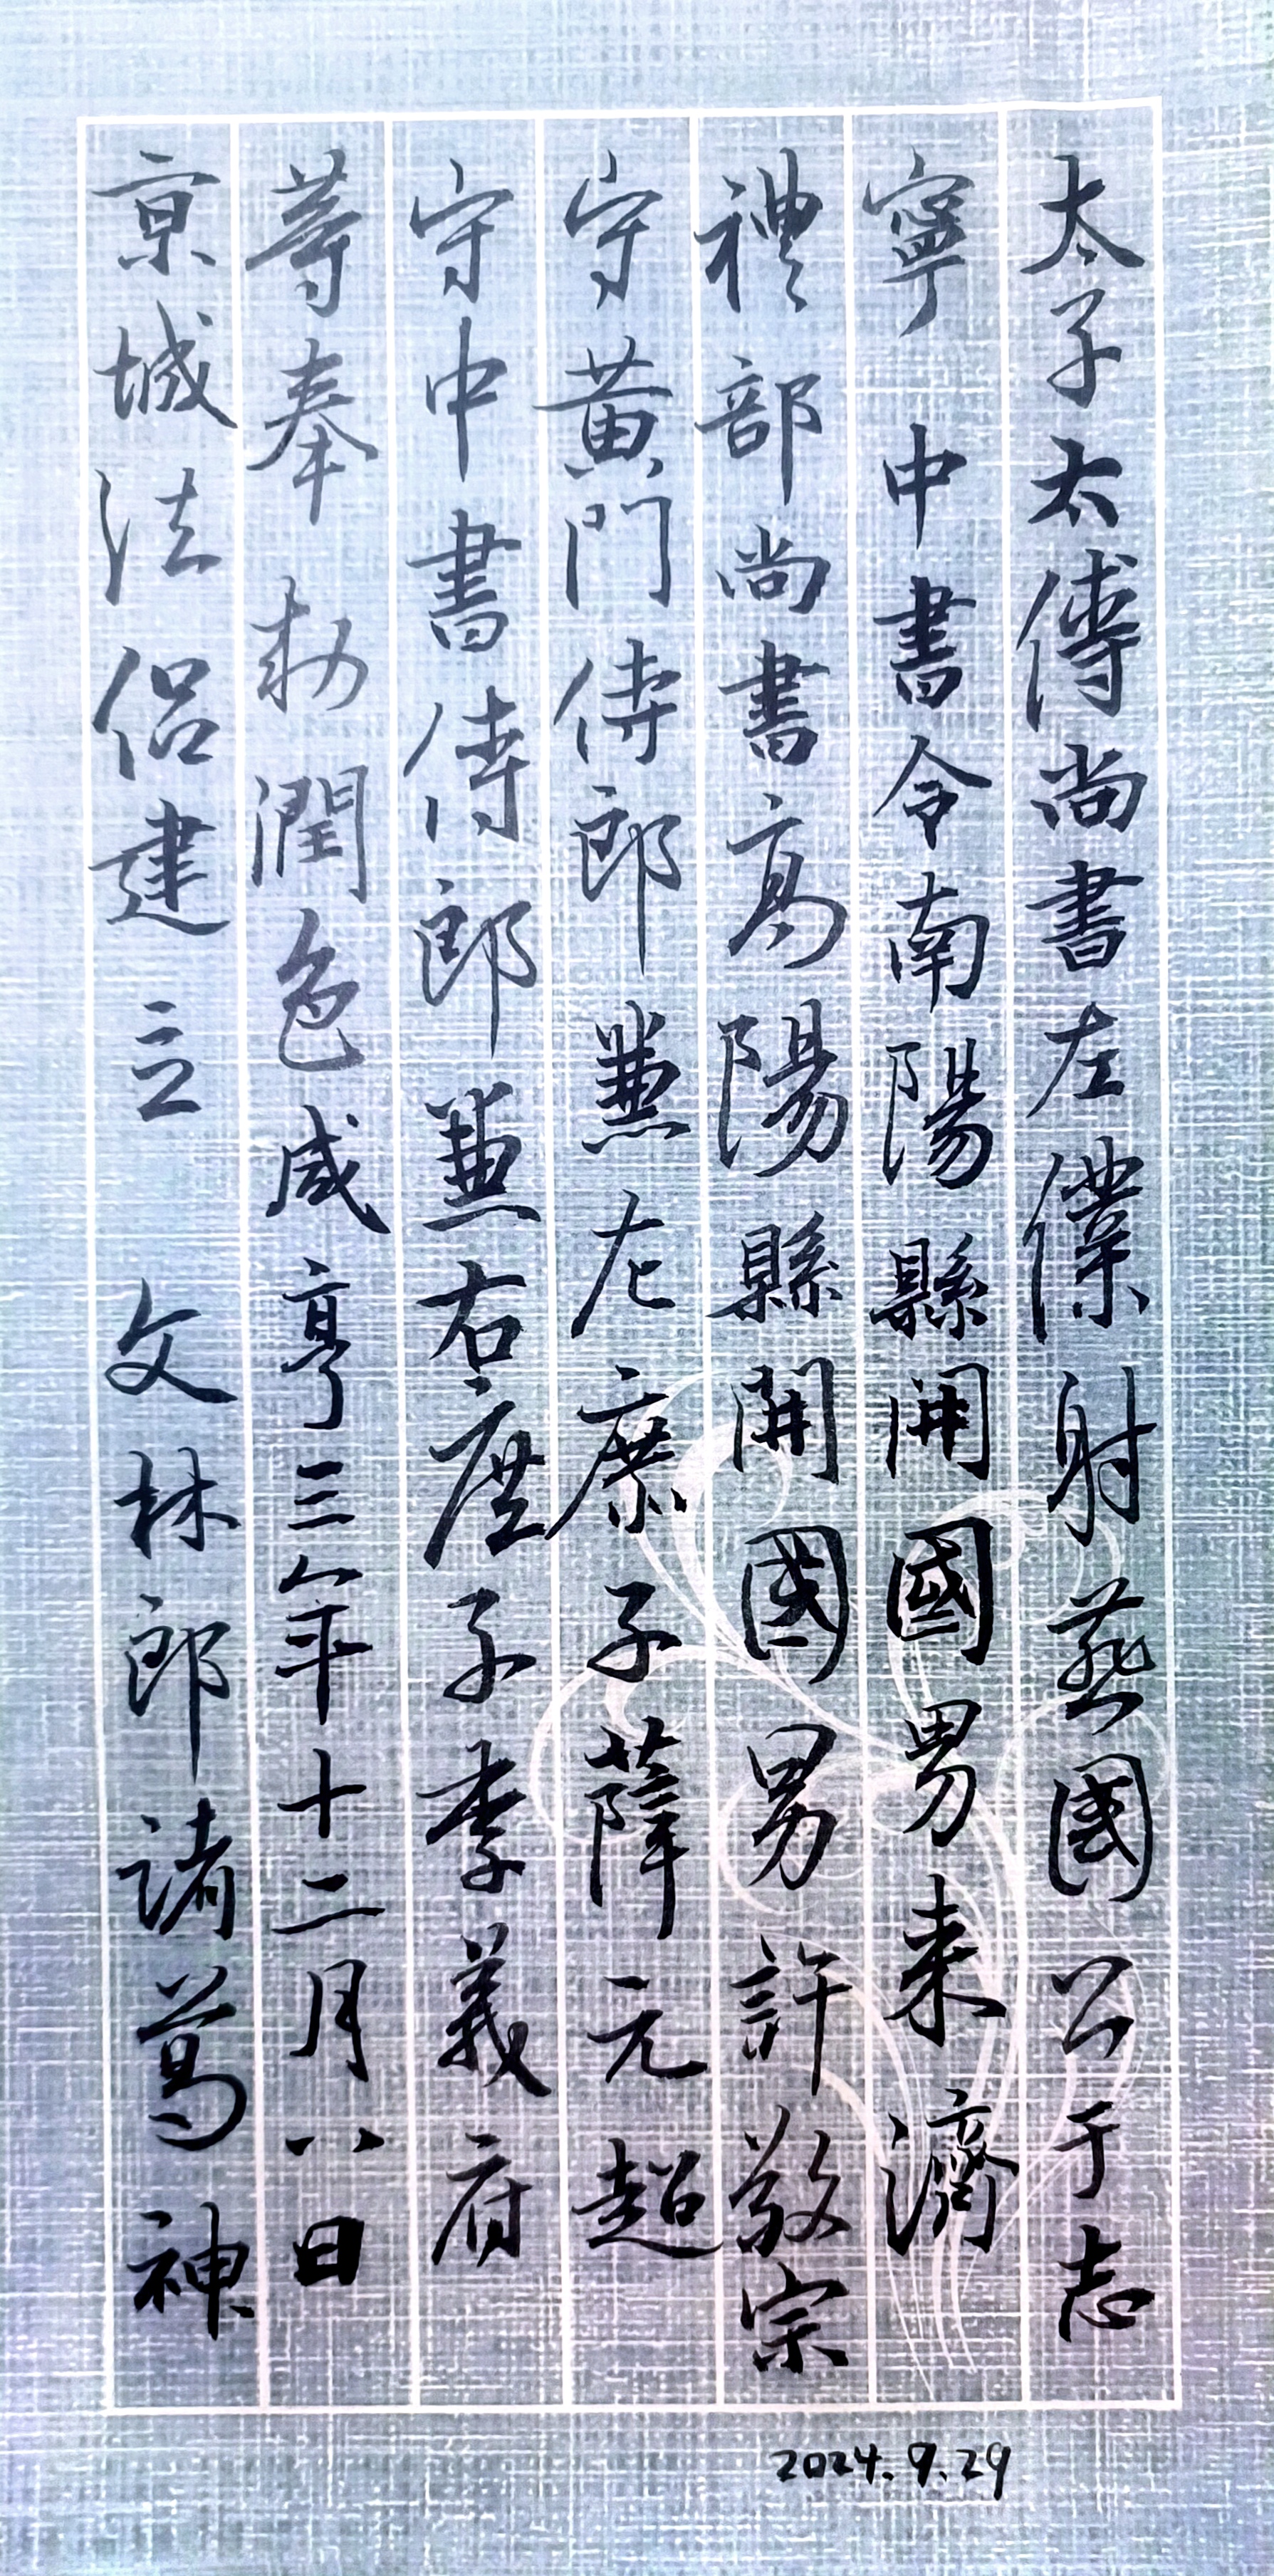 太子太傅尚書左僕射燕國公于志
寧中書令南陽縣開國男来濟
禮部尚書高陽縣開國男許敬宗
守黃門侍郎兼左庶子薛元超
守中書侍郎兼右庶子李義府
等奉勑潤色咸亨三年十二月八日
京城法侣建立文林郎諸葛神
2024.9.29